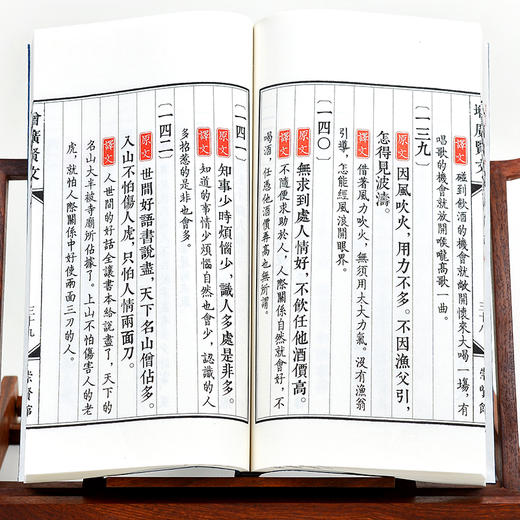 增廣賢文
三十八
崇賢館
譯文 碰到飲酒的機會就敞開懷來大喝一場，有
唱歌的機會就放開喉嚨高歌一曲。
〔一三九〕
原文 因風吹火，用力不多。不因漁父引，
怎得見波濤。
譯文 借著風力吹火，無須用太大力氣。沒有漁翁
引導，怎能經風浪開眼界。
〔一四〇〕
原文 無求到處人情好，不飲任他酒價高。
譯文 不隨便求助於人，人際關係自然就會好，不
喝酒，任憑他酒價弄高也無所謂。
〔一四一〕
原文 知事少時煩惱少，識人多處是非多。
譯文 知道的事情少煩惱自然也會少，認識的人
多招惹的是非也會多。
〔一四二〕
原文 世間好語書說盡，天下名山僧佔多。
入山不怕傷人虎，只怕人情兩面刀。
譯文 人世間的好話全讓書本給說盡了，天下的
名山大半被寺廟所佔據了。上山不怕傷害人的老
虎，就怕人際關係中好使兩面三刀的人。
增廣賢文
三十九
崇賢館